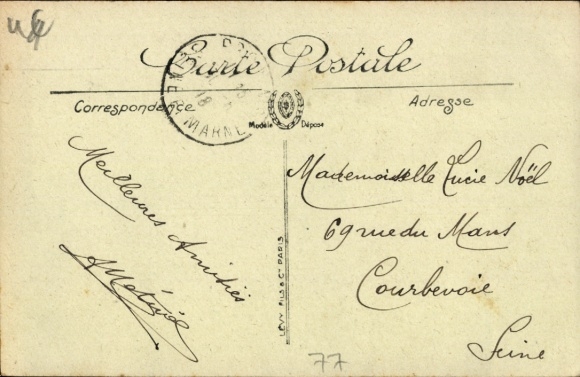 Carte Postale
Correspondance
Adresse
Modèle Déposé
MARNE
Meilleures Amitiés
Mademoiselle Lucie Noël
69 rue du Mans
Courbevoie
Seine
LÉVY FILS & Cie PARIS
77